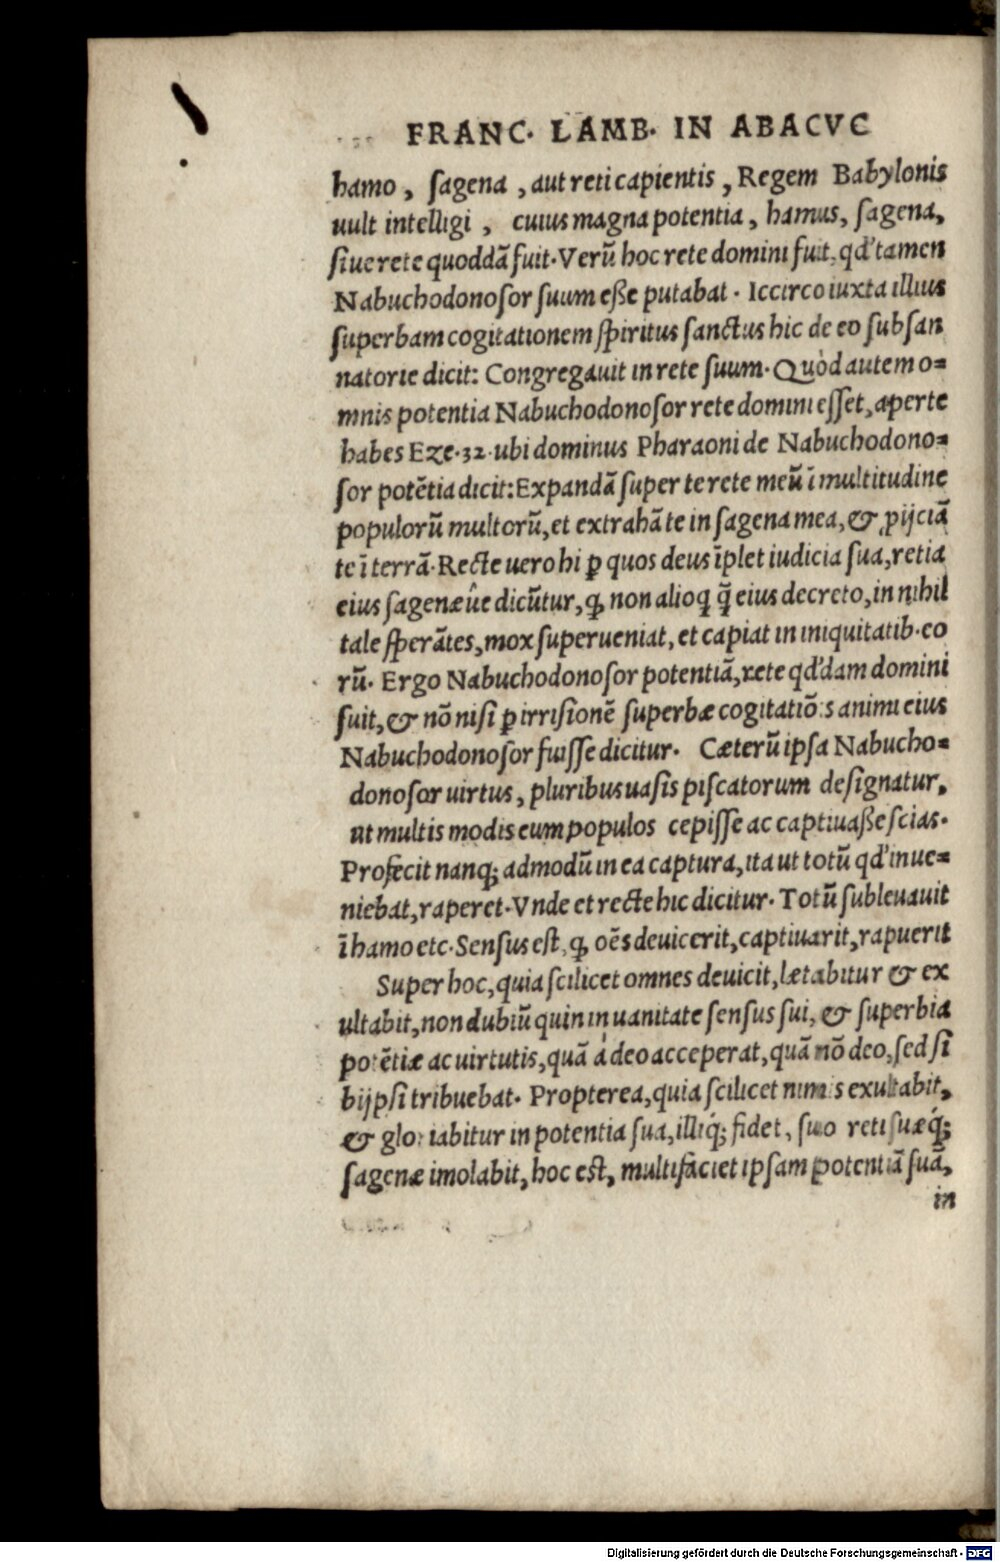 FRANC. LAMB. IN ABACVC
hamo, ſagena, aut reti capientis, Regem Babylonis
uult intelligi, cuius magna potentia, hamus, ſagena,
ſiue rete quoddã fuit. Verũ hoc rete domini fuit, qd' tamen
Nabuchodonoſor ſuum eße putabat. Iccirco iuxta illius
ſuperbam cogitationem ſpiritus ſanctus hic de eo ſubſan
natorie dicit: Congregauit in rete ſuum. Quòd autem o=
mnis potentia Nabuchodonoſor rete domini eſſet, aperte
habes Eze. 32. ubi dominus Pharaoni de Nabuchodono=
ſor potẽtia dicit: Expandã ſuper te rete meũ ĩ multitudine
populorũ multorũ, et extrahã te in ſagena mea, & ꝓijciã
te ĩ terrã. Recte uero hi ꝑ quos deus ĩplet iudicia ſua, retia
eius ſagenæûe dicũtur, ꝙ non alioq̃ q̃̃ eius decreto, in nihil
tale ſperãtes, mox ſuperueniat, et capiat in iniquitatib. eo
rũ. Ergo Nabuchodonoſor potentiã, rete qd'dam domini
fuit, & nõ niſi ꝑ irriſionẽ ſuperbæ cogitatiõis animi eius
Nabuchodonoſor fuiſſe dicitur. Cæterũ ipſa Nabucho=
donoſor uirtus, pluribus uaſis piſcatorum deſignatur,
ut multis modis eum populos cepiſſe ac captiuaße ſcias.
Profecit nanq; admodũ in ea captura, ita ut totũ qd' inue=
niebat, raperet. Vnde et recte hic dicitur. Totũ ſubleuauit
ĩ hamo etc. Senſus eſt, ꝙ oẽs deuicerit, captiuarit, rapuerit
Super hoc, quia ſcilicet omnes deuicit, lætabitur & ex
ultabit, non dubiũ quin in uanitate ſenſus ſui, & ſuperbia
potẽtiæ ac uirtutis, quã à deo acceperat, quã nõ deo, ſed ſi
bijpſi tribuebat. Propterea, quia ſcilicet nimis exultabit,
& gloriabitur in potentia ſua, illiq́; fidet, ſuo reti ſuæq́;
ſagenæ imolabit, hoc eſt, multifaciet ipſam potentiã ſuã,
in
Digitalisierung gefördert durch die Deutsche Forschungsgemeinschaft - DFG